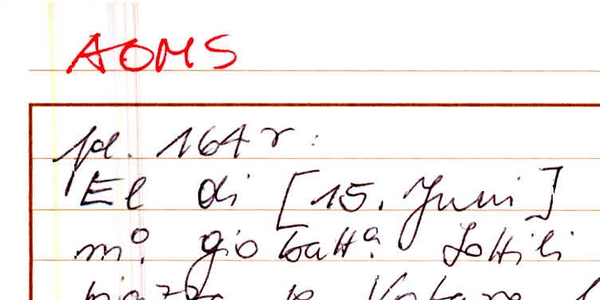 AOMS
fol. 164 r:
El di [15. Juni]
m.º gio batt.ª Sottili